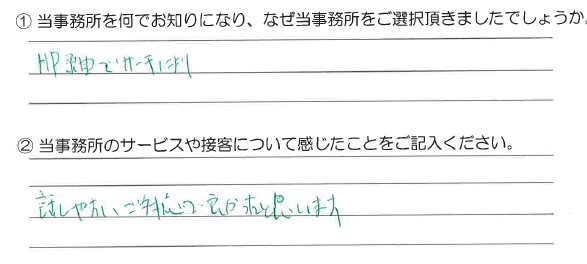 ① 当事務所を何でお知りになり、なぜ当事務所をご選択頂きましたでしょうか。
HP経由でサーチにより
② 当事務所のサービスや接客について感じたことをご記入ください。
話しやすい、ご対応で良かったと思います